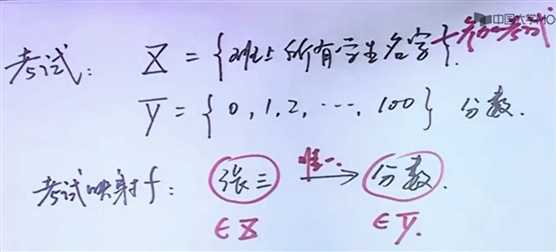 中国大学MO
考试: X = {班上所有学生名字} 参加考试
Y = {0, 1, 2, ..., 100} 分数.
考试映射f: 张三 唯一 → 分数.
∈ X ∈ Y.